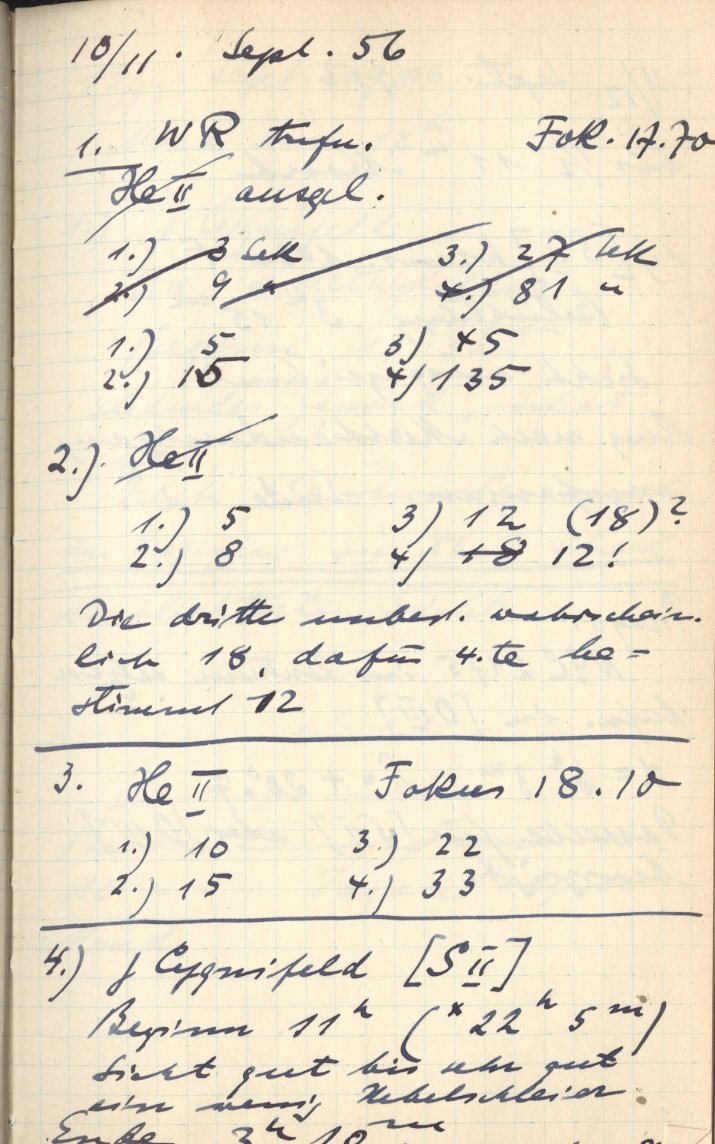 10/11. Sept. 56
1. WR Fok. 17.70
He II ausgel.
1.) 3 Sek 3.) 27 Sek
2.) 9 " 4.) 81 "
1.) 5 3) 45
2.) 15 4) 135
2.). He II
1.) 5 3) 12 (18)?
2.) 8 4) 18 12!
Die dritte unbest. wahrschein-
lich 18, dafür 4.te be=
stimmt 12
3. He II Fokus 18.10
1.) 10 3.) 22
2.) 15 4.) 33
4.) γ Cygnifeld [S II]
Beginn 11ʰ (* 22ʰ 5ᵐ)
Sicht gut bis sehr gut
ein wenig Nebelschleier
Ende 3ʰ 10ᵐ